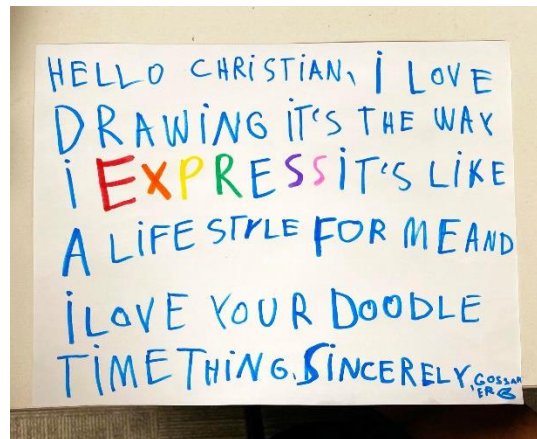 HELLO CHRiSTiAN, i LOVE
DRAWiNG iT'S THE WAY
i EXPRESS iT'S LiKE
A LiFE STYLE FOR ME AND
i LOVE YOUR DOODLE
TiME THiNG. SiNCERELY,